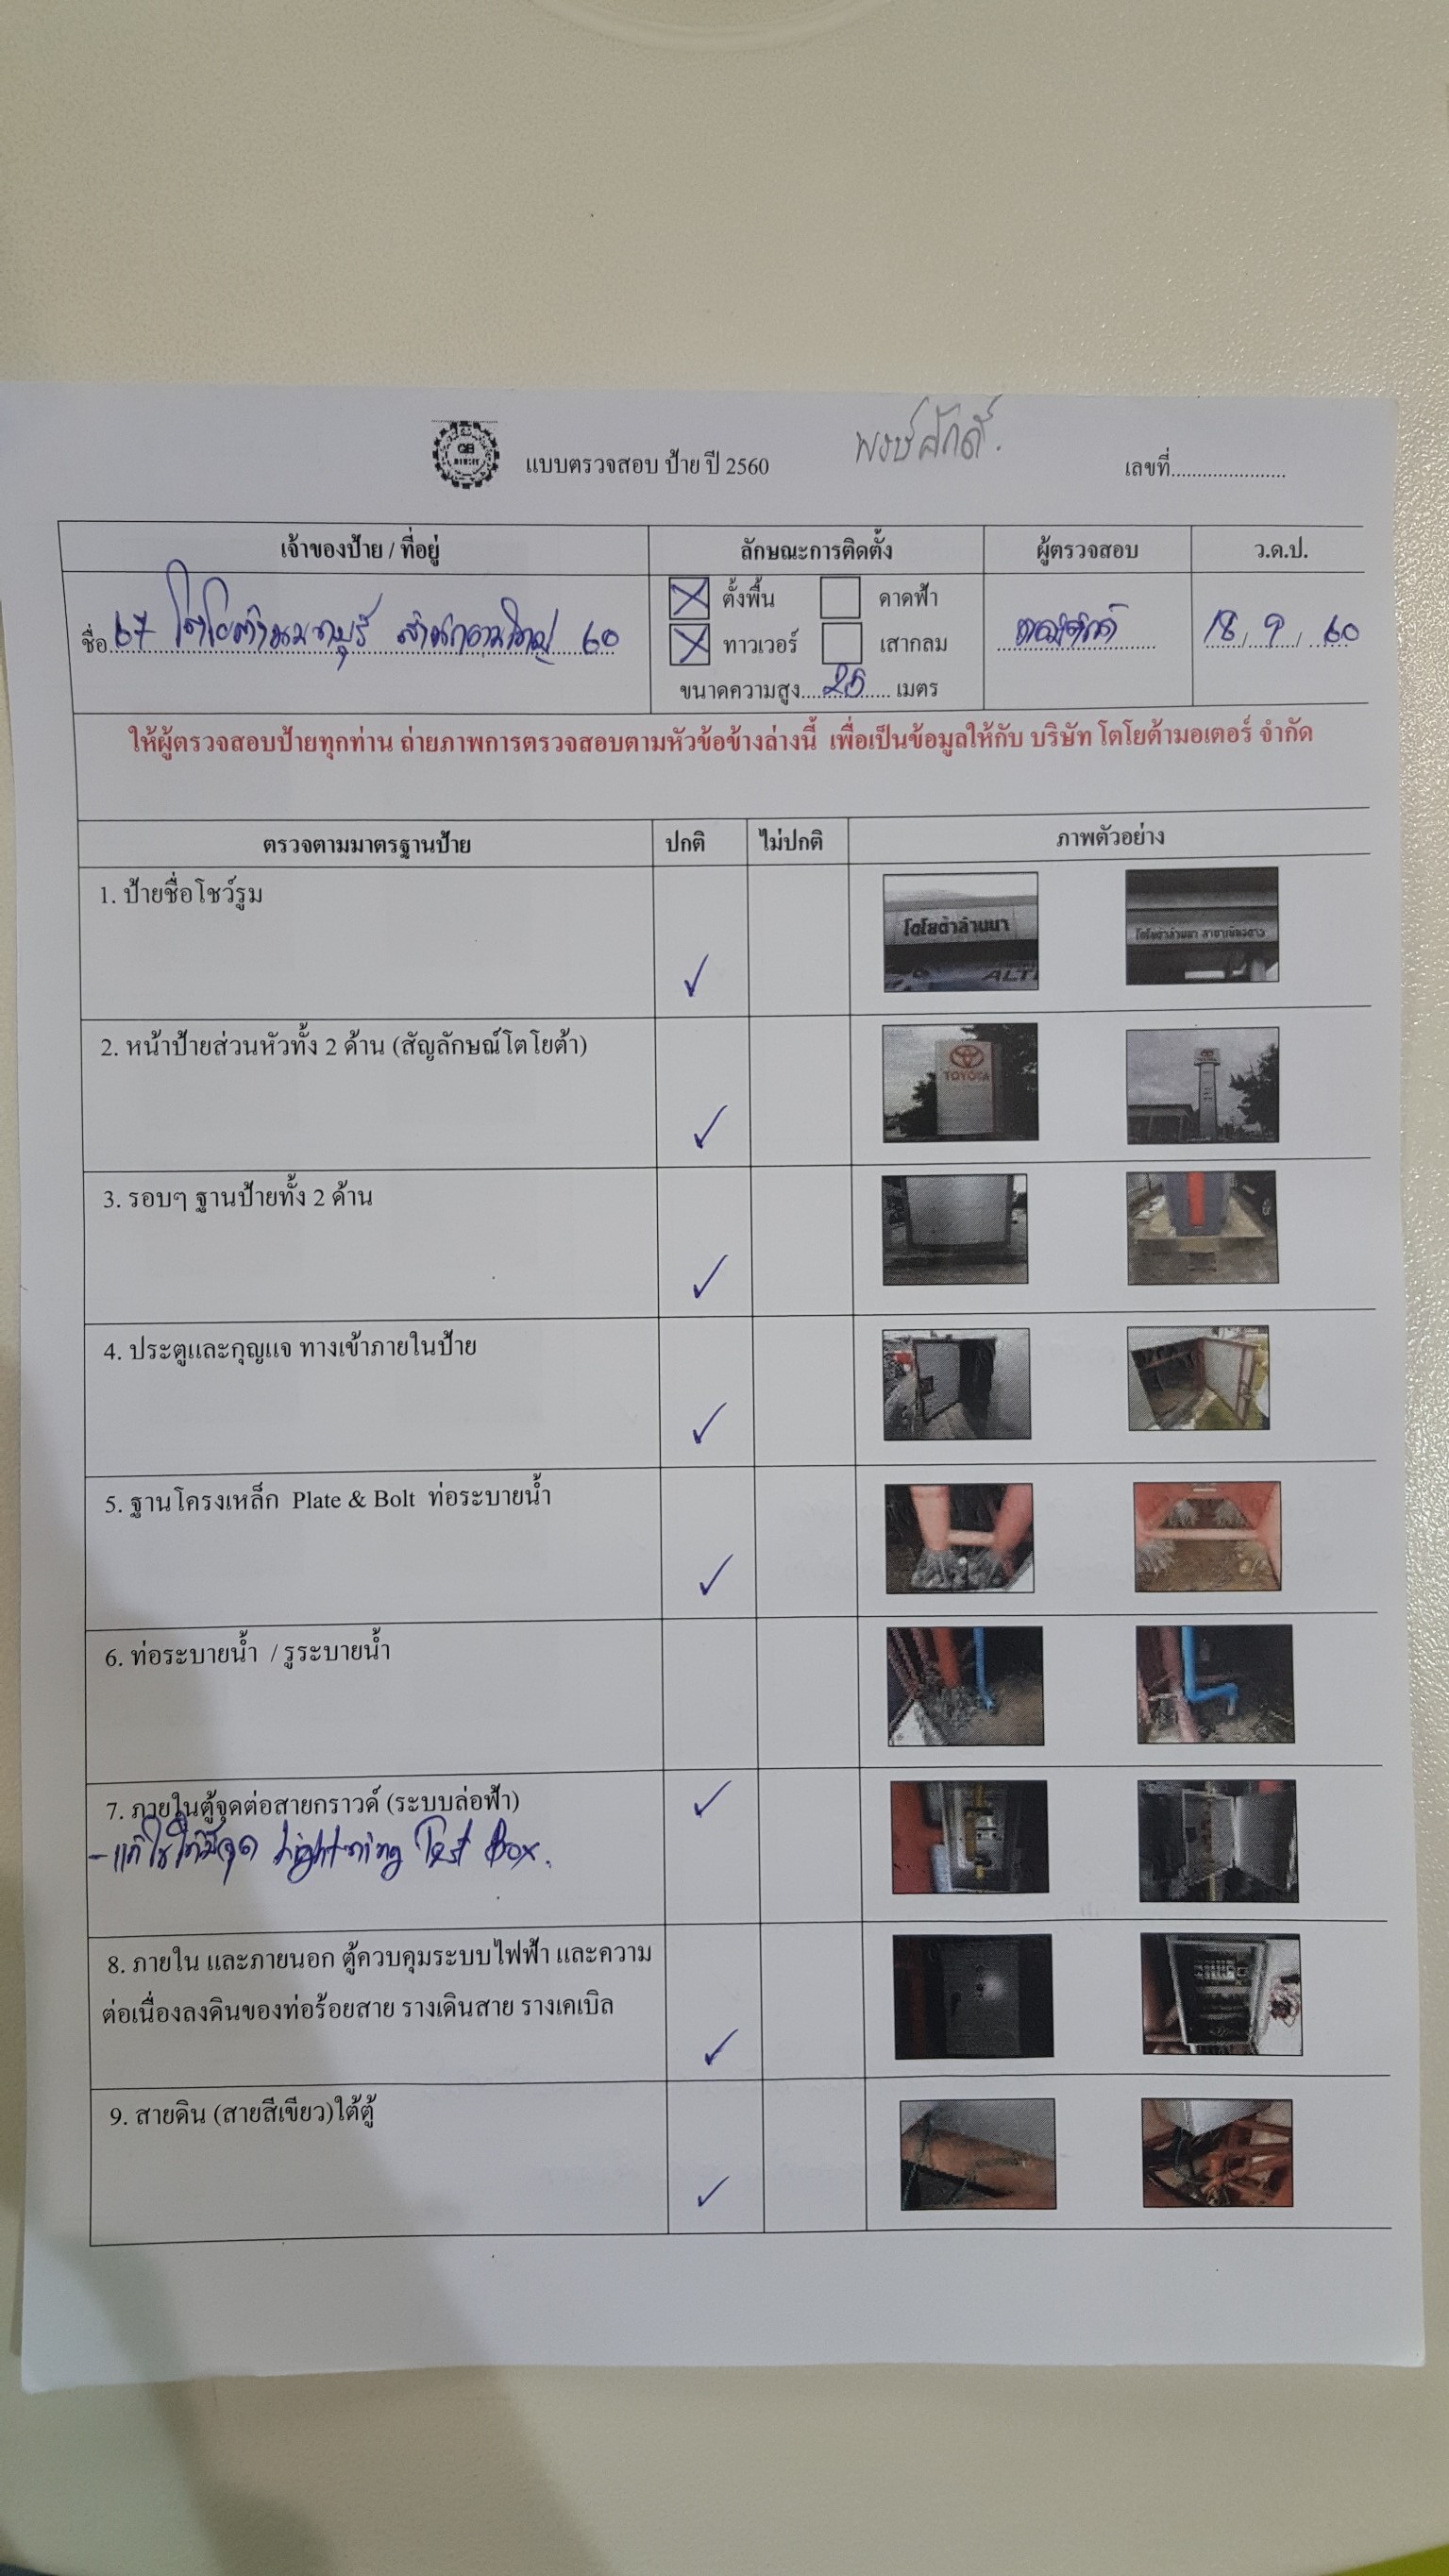 พงษ์ศักดิ์.
แบบตรวจสอบ ป้าย ปี 2560
เลขที่......................
เจ้าของป้าย / ที่อยู่ ลักษณะการติดตั้ง ผู้ตรวจสอบ ว.ด.ป.
ตั้งพื้น ดาดฟ้า
ชื่อ 67 โตโยต้านนทบุรี สำนักงานใหญ่ 60
ทาวเวอร์ เสากลม
18/9/60
ขนาดความสูง 25 เมตร
ให้ผู้ตรวจสอบป้ายทุกท่าน ถ่ายภาพการตรวจสอบตามหัวข้อข้างล่างนี้ เพื่อเป็นข้อมูลให้กับ บริษัท โตโยต้ามอเตอร์ จำกัด
ตรวจตามมาตรฐานป้าย ปกติ ไม่ปกติ ภาพตัวอย่าง
1. ป้ายชื่อโชว์รูม
โตโยต้าล้านนา
ALTI
2. หน้าป้ายส่วนหัวทั้ง 2 ด้าน (สัญลักษณ์โตโยต้า)
TOYOTA
3. รอบๆ ฐานป้ายทั้ง 2 ด้าน
4. ประตูและกุญแจ ทางเข้าภายในป้าย
5. ฐานโครงเหล็ก Plate & Bolt ท่อระบายน้ำ
6. ท่อระบายน้ำ / รูระบายน้ำ
7. ภายในตู้จุดต่อสายกราวด์ (ระบบล่อฟ้า)
- แก้ไขให้มีจุด Lightning Test Box.
8. ภายใน และภายนอก ตู้ควบคุมระบบไฟฟ้า และความ
ต่อเนื่องลงดินของท่อร้อยสาย รางเดินสาย รางเคเบิล
9. สายดิน (สายสีเขียว)ใต้ตู้